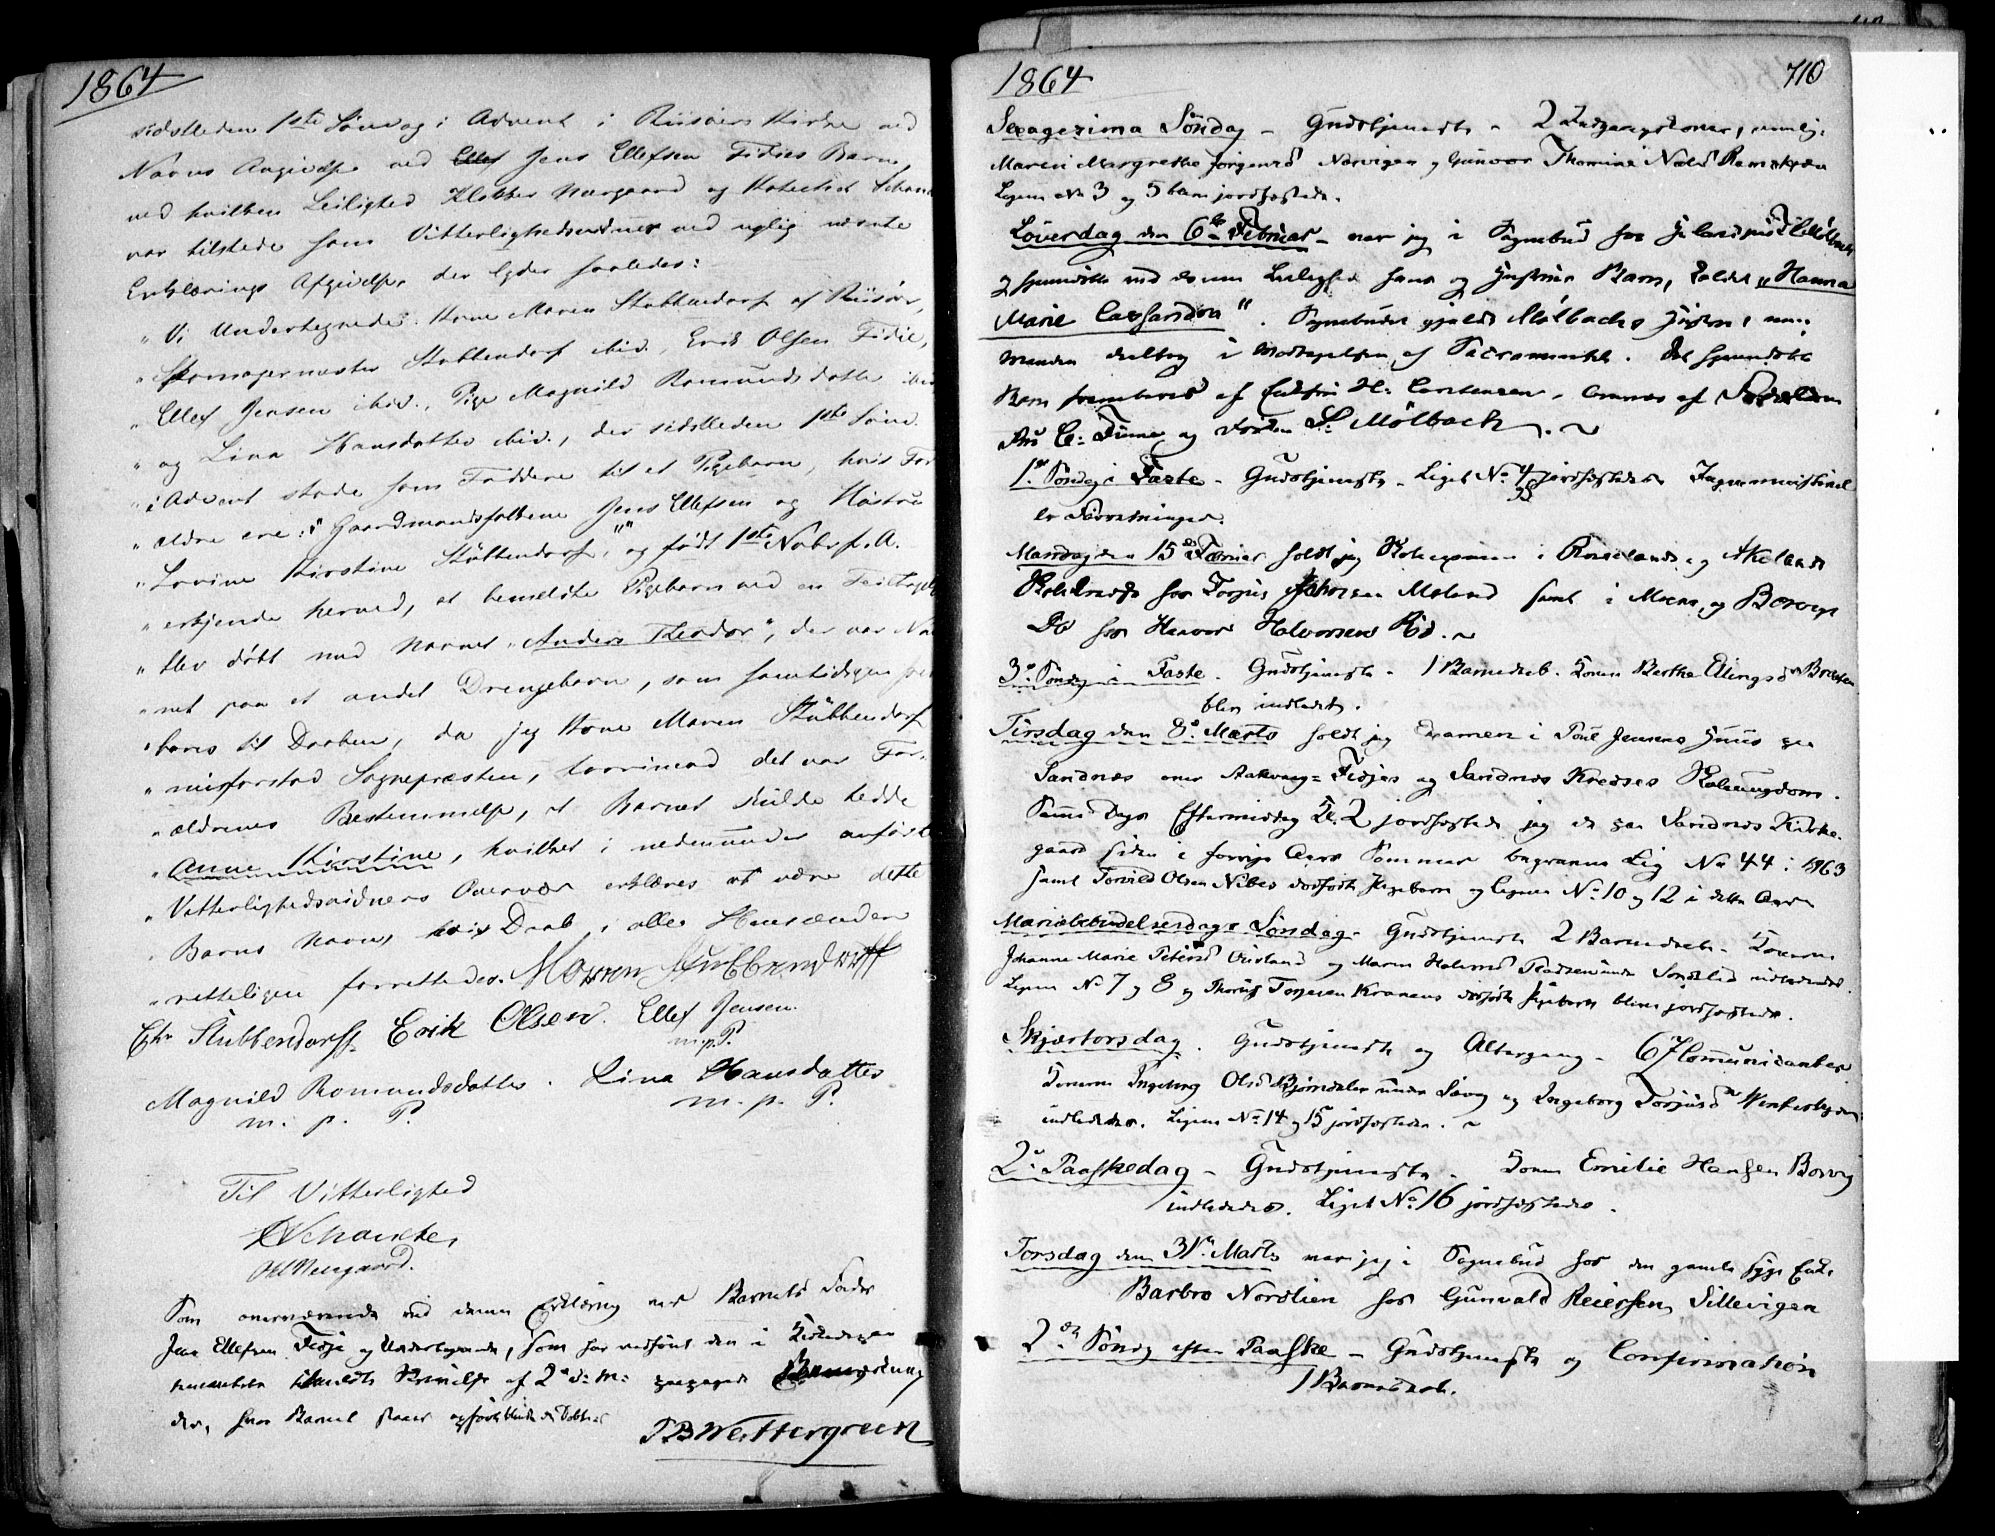 1864
sidstleden 1ste Søndag i Advent i Riisøers Kirke ved
Navns Angivelse ved Jens Ellefsen Fidies Barn,
ved hvilken Leilighed Klokker Neergaard og Katechet Schan
var tilstede som Vitterlighedsvidner ved nylig nævnte
Erklærings Afgivelse, der lyder saaledes:
"Vi Undertegnede: Kone Maren Stubbendorf af Riisøer,
"Skomagermester Stubbendorf ibid., Erik Olsen Fidie,
"Ellef Jensen ibid., Pige Magnild Romundsdatter ibid
"og Lina Hansdatter ibid., der sidstleden 1ste Sønd.
"i Advent stode som Faddere til et Pigebarn, hvis For
"ældre ere: Gaardmandsfolkene Jens Ellefsen og
"Lovine Kirstine Stubbendorf, og født 1ste Novbr. f. A.
"erkjende herved, at bemeldte Pigebarn ved en Feiltagelse
"blev døbt med Navnet "Anders Theodor", der var Nav
"net paa et andet Drengebarn, som samtidigen frem
"bares til Daaben, da jeg Kone Maren Stubbendorf
"misforstod Sognepræsten, hvorimod det var For-
"ældrenes Bestemmelse, at Barnet skulde hedde
"Anne Kirstine, hvilket i nedenunder anførte
"Vitterlighedsvidners Overvær erklæres at være dette
"Barns Navn, hvis Daab i alle Henseender
"retteligen forrettedes. Maren Stubbendorff
Chr Stubbendorff. Erik Olsen. Ellef Jensen.
m.p.P.
Magnild Romundsdatter. Lina Hansdatter
m. p. P. m. p. P.
Til Vitterlighed
Schancke,
Neergaard.
Som overværende ved denne Erklæring var Barnets Fader
Jens Ellefsen Fidje og Undertegnede, som har vedføiet den i Kirkebogen
af 2den d: M:
der, hvor Barnet staaer opført blandt de Døbte.
Wettergreen
1864 710
Sexagesima Søndag - Gudstjeneste - 2 Indgangskoner, nemlig:
Maren Margrethe Jørgensd Narvigen og Gunvor Thomine Nalsd Ramskjær
Ligene No 3 og 5 bleve jordfæstede.
Løverdag den 6te Februar var jeg i Sognebud hos
og hjemdøbte ved denne Leilighed hans og Hustrues Barn, kaldet "Hanna
Marie Cassandra". Sognebudet gjaldt Mølbachs Hustru,
Manden deltog i Modtagelsen af Sacramentet. Det hjemdøbte
Barn frembares af H: Carstensen, af
Fru C: Finne og S: Mølbach.
1ste Søndag i Faste - Gudstjeneste - Liget No 4 jordfæstedes Ingen ministeriel
le Forretninger.
Mandag den 15de Februar holdt jeg i Roselands og Akelands
hos Torjus Moland samt i Moen og Borøya
Do hos Haavor Halvorsen Rød.
3de Søndag i Faste. Gudstjeneste - 1 Barnedaab. Konen Berthe Ellingsdr
blev indledet.
Tirsdag den 8de Marts holdt jeg Examen i Poul Jensens Huus paa
Sandnæs over Aakvaag= Fidjes og Sandnæs Kredses Skoleungdom.
Samme Dags Eftermiddag Kl. 2 jordfæstede jeg de paa Sandnæs Kirke-
gaard siden i forrige Aars Sommer begravne Lig No 44 i 1863
samt Torvild Olsen Nibes dødfødte Pigebarn og Ligene No 10 og 12 i dette Aar
Mariæbebudelsesdags Søndag - Gudstjeneste 2 Barnedaab - Konerne
Johanne Marie Petersd og Maren Halvorsd indlededes.
Ligene No 7 og 8 og Torjesen Kranens dødfødte Pigebarn bleve jordfæstede.
Skjærtorsdag. Gudstjeneste og Altergang - 67 Communicanter
Konerne Ingeborg Olsd Bjørndalen under Lavng og Ingeborg Torjusdr
indlededes. Ligene No 14 og 15 jordfæstedes.
2den Paaskedag - Gudstjeneste - Konen Emilie Hansen Borøy
indlededes. Liget No 16 jordfæstedes.
Torsdag den 31te Marts var jeg i Sognebud hos den gamle syge Enke
Barbro Nordlien hos Gunvald Reiersen, Sillevigen
2den Søndag efter Paaske - Gudstjeneste og Confirmation
1 Barnedaab.